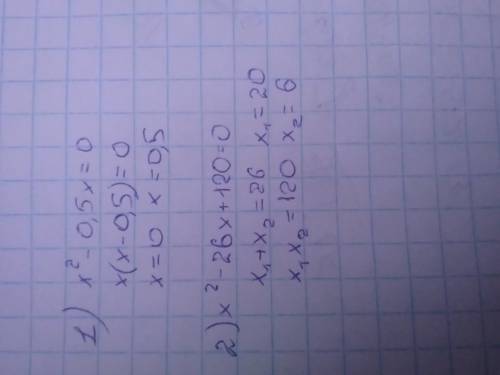 1) x² - 0,5x = 0
x(x-0,5)=0
x=0 x=0,5
2) x² - 26x + 120 = 0
x₁+x₂ = 26 x₁ = 20
x₁x₂ = 120 x₂ = 6